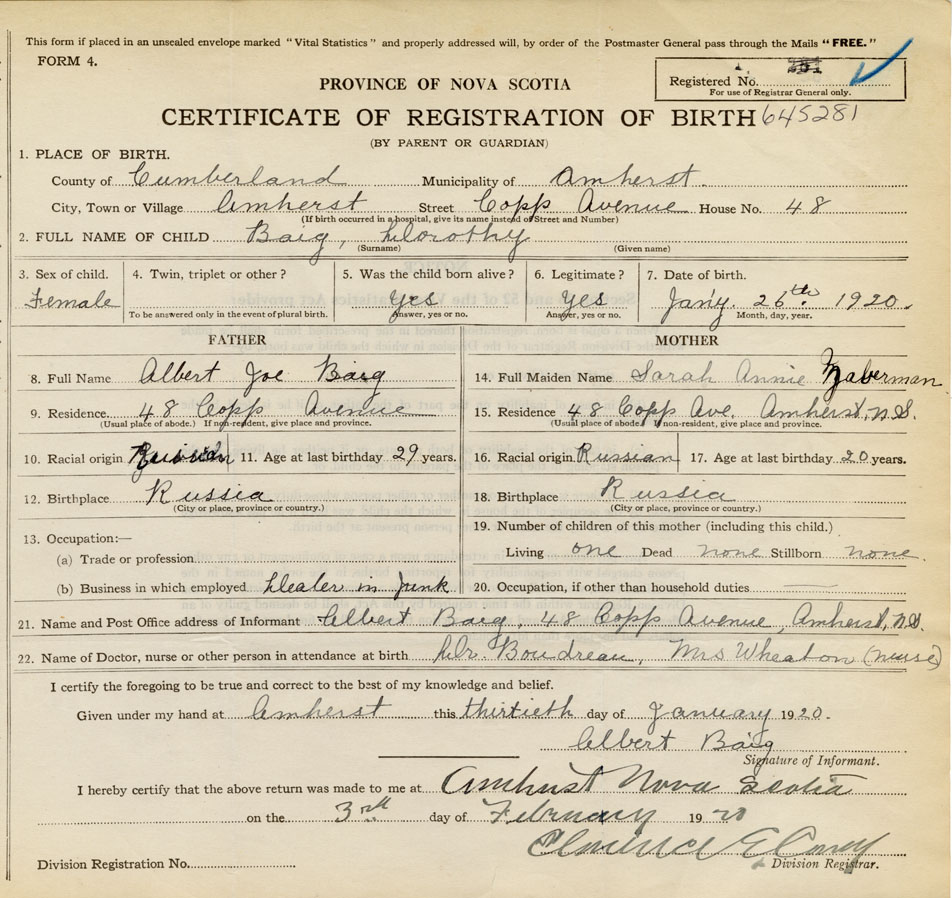 This form if placed in an unsealed envelope marked "Vital Statistics" and properly addressed will, by order of the Postmaster General pass through the Mails "FREE."
FORM 4.
Registered No.
For use of Registrar General only.
PROVINCE OF NOVA SCOTIA
CERTIFICATE OF REGISTRATION OF BIRTH 645281
(BY PARENT OR GUARDIAN)
1. PLACE OF BIRTH.
County of Cumberland Municipality of Amherst.
City, Town or Village Amherst Street Copp Avenue House No. 48
(If birth occurred in a hospital, give its name instead of Street and Number)
2. FULL NAME OF CHILD Baig, Dorothy
(Surname) (Given name)
3. Sex of child. 4. Twin, triplet or other? 5. Was the child born alive? 6. Legitimate? 7. Date of birth.
Female Yes Yes Jan'y. 26th 1920.
To be answered only in the event of plural birth. Answer, yes or no. Answer, yes or no. Month, day, year.
FATHER MOTHER
8. Full Name Albert Joe Baig 14. Full Maiden Name Sarah Annie Haberman
9. Residence 48 Copp Avenue 15. Residence 48 Copp Ave. Amherst, N.S.
(Usual place of abode.) If non-resident, give place and province. (Usual place of abode.) If non-resident, give place and province.
10. Racial origin 11. Age at last birthday 29 years. 16. Racial origin Russian 17. Age at last birthday 20 years.
12. Birthplace Russia 18. Birthplace Russia
(City or place, province or country.) (City or place, province or country.)
19. Number of children of this mother (including this child.)
13. Occupation:—
(a) Trade or profession Living one Dead none Stillborn none
(b) Business in which employed Dealer in junk 20. Occupation, if other than household duties
21. Name and Post Office address of Informant Albert Baig, 48 Copp Avenue, Amherst, N.S.
22. Name of Doctor, nurse or other person in attendance at birth Dr. Boudreau, Mrs Wheaton (nurse)
I certify the foregoing to be true and correct to the best of my knowledge and belief.
Given under my hand at Amherst this thirtieth day of January 1920.
Albert Baig
Signature of Informant.
I hereby certify that the above return was made to me at Amherst Nova Scotia
on the 3rd day of February 1920
Clarence E Casey
Division Registration No. Division Registrar.